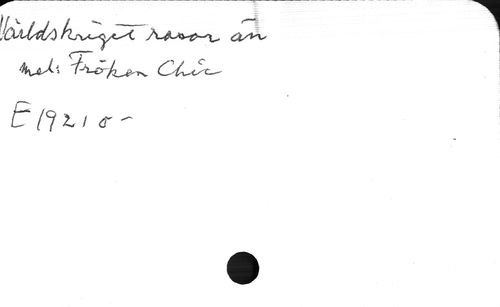 Världskriget rasar än
mel: Fröken Chic
E 1921 o -